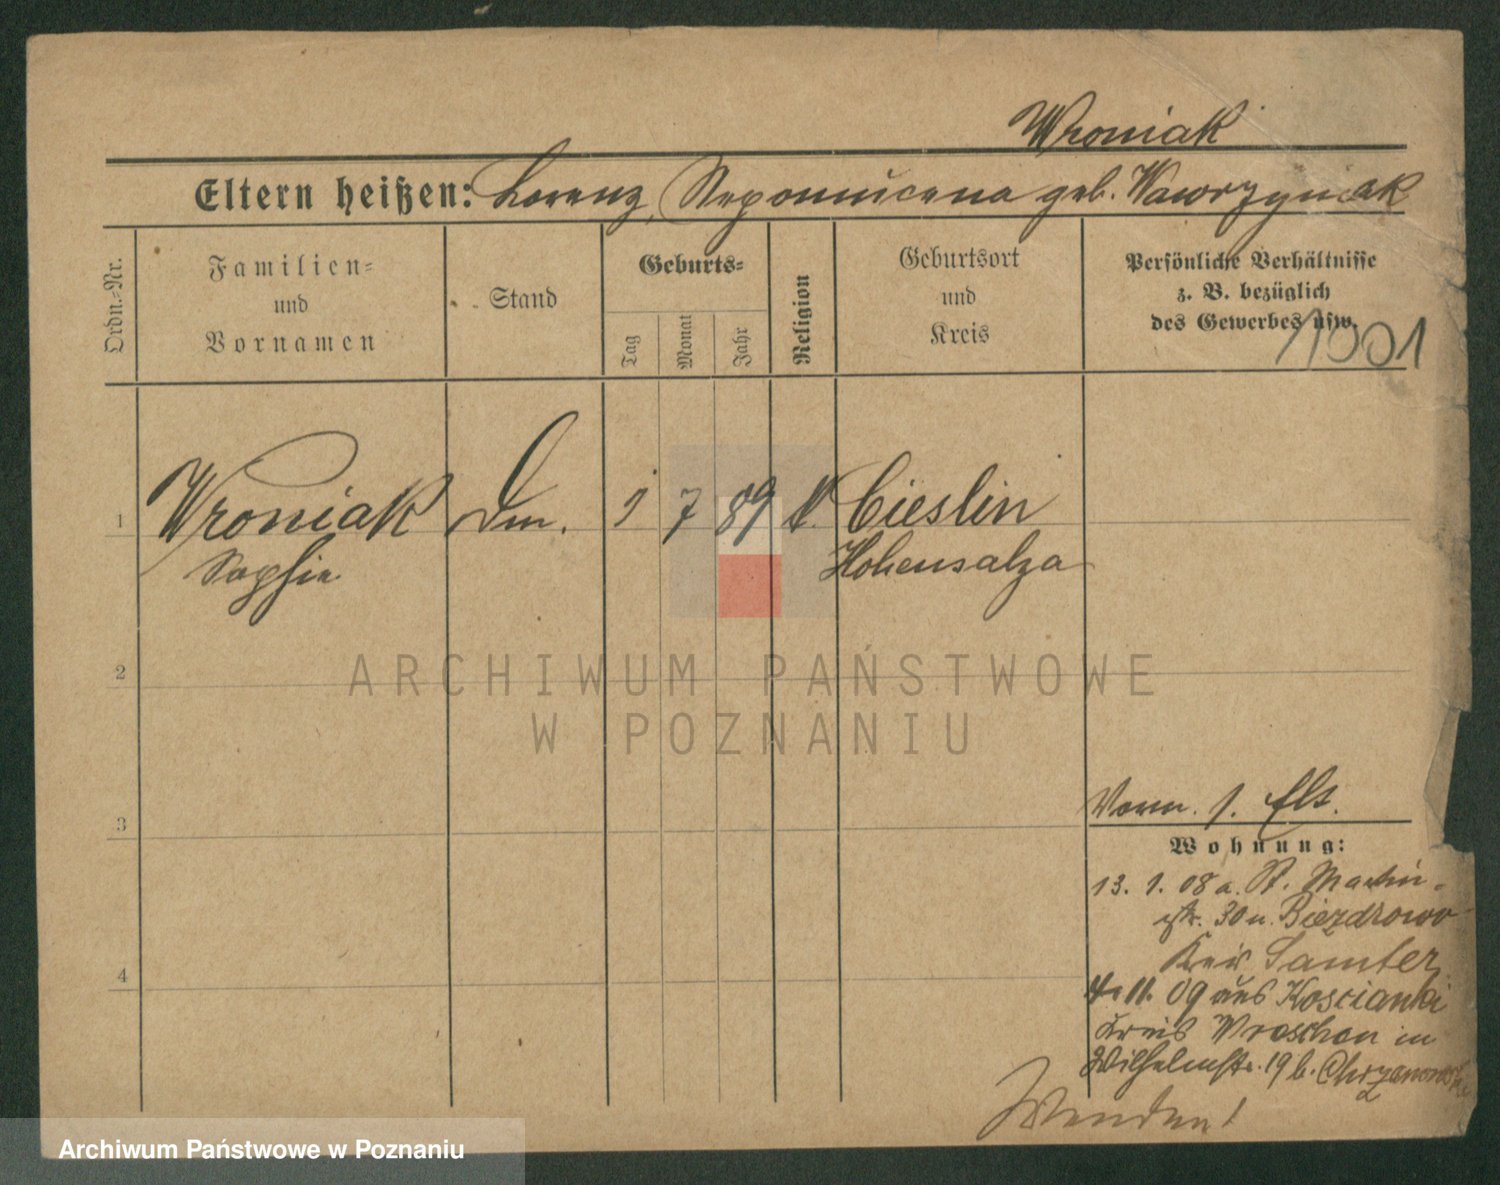 Wroniak
Eltern heißen: Lorenz, Nepomucena geb. Wawrzyniak
Ordn.-Nr.
Familien-
und
Vornamen
Stand
Geburts-
Tag
Monat
Jahr
Religion
Geburtsort
und
Kreis
Persönliche Verhältnisse
z. B. bezüglich
des Gewerbes usw.
1001
1
Wroniak
Sophie
1 7 89 k.
Cieslin
Hohensalza
2
ARCHIWUM PAŃSTWOWE
W POZNANIU
3
Vorm. 1.
Wohnung:
13. 1. 08 a. St. Martin-
str. 30 n. Biezdrowo
Kreis Samter
4
4. 11. 09 aus Koscianki
Kreis Wreschen in
Wilhelmstr. 19 b.
Wenden!
Archiwum Państwowe w Poznaniu